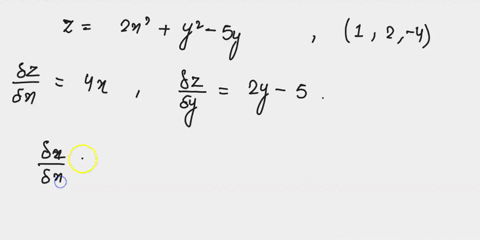 z = 2x² + y² - 5y , (1, 2, -4)
δz/δx = 4x , δz/δy = 2y - 5 .
δz/δx